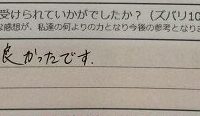 受けられていかがでしたか？（ズバリ10
な感想が、私達の何よりの力となり今後の参考となりま
良かったです.